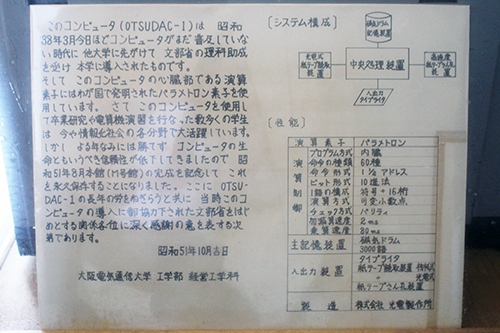 このコンピュータ(OTSUDAC-1)は 昭和
38年3月今日ほどコンピュータがまだ普及していな
い時代に他大学に先がけて文部省の理科助成
を受け 本学に導入されたものです。
そして このコンピュータの心臓部である演算
素子にはわが国で発明されたパラメトロン素子を使
用しています。さて このコンピュータを使用し
て卒業研究や電算機演習を行なった数多くの学生
は 今や情報化社会の各分野で大活躍しています。
しかし よる年なみには勝てず コンピュータの生
命ともいうべき信頼性が低下してきましたので 昭
和51年8月本館(M号館)の完成を記念して これ
を永久保存することになりました。ここに OTSU-
DAC-1の長年の労をねぎらうと共に 当時このコ
ンピュータの導入に御協力下された文部省をはじ
めとする関係各位に深く感謝の意を表する次
第であります。
昭和51年10月吉日
大阪電気通信大学 工学部 経営工学科
〔システム構成〕
磁気ドラム
記憶装置
光電式
紙テープ読取
装置
中央処理装置
高速度
紙テープさん孔
装置
入出力
タイプライタ
〔性能〕
演算制御
演算素子 パラメトロン
プログラム方式 内蔵
命令の種類 60種
命令形式 1½アドレス
ビット形式 10進法
1語の構成 符号+16桁
演算方式 可変小数点
チェック方式 パリティ
加減算速度 2ms
乗算速度 80ms
主記憶装置 磁気ドラム
3000語
入出力装置 タイプライタ
紙テープ読取装置 機械式
光電式
紙テープさん孔装置
製造 株式会社 光電製作所